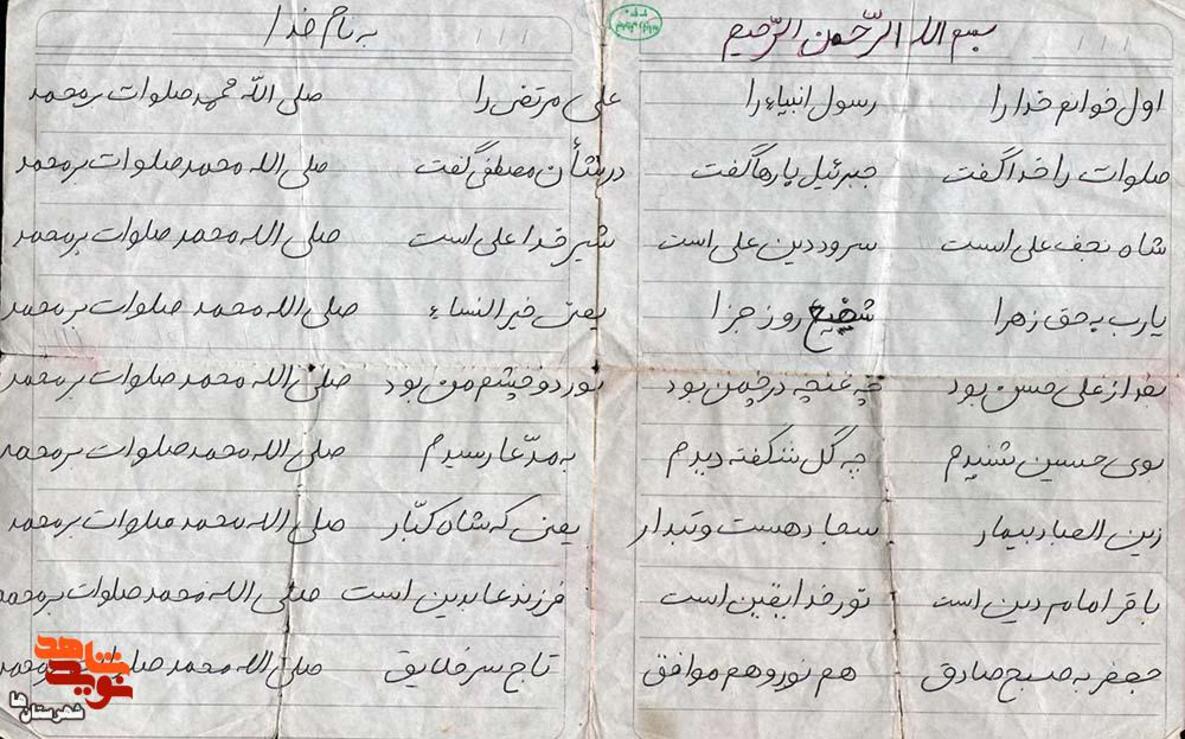 بسم الله الرّحمن الرّحیم
به نام خدا
اول خوانم خدا را رسول انبیاء را علی مرتضی را صلی الله محمد صلوات بر محمد
صلوات را خدا گفت جبرئیل بارها گفت در شأن مصطفی گفت صلی الله محمد صلوات بر محمد
شاه نجف علی است سرور دین علی است شیر خدا علی است صلی الله محمد صلوات بر محمد
یارب به حق زهرا شفیع روز جزا یعنی خیر النساء صلی الله محمد صلوات بر محمد
بعد از علی حسن بود چه غنچه در چمن بود نور دو چشم من بود صلی الله محمد صلوات بر محمد
بوی حسین شنیدم چه گل شکفته دیدم به مدّعا رسیدم صلی الله محمد صلوات بر محمد
زین العباد بیمار سجاد هست و تبدار یعنی که شاه کبّار صلی الله محمد صلوات بر محمد
باقر امام دین است نور خدا یقین است فرزند عابدین است صلی الله محمد صلوات بر محمد
جعفر به صبح صادق هم نور و هم موافق تاج سر خلایق صلی الله محمد صلوات بر محمد
نوید شاهد
شهرستان ها